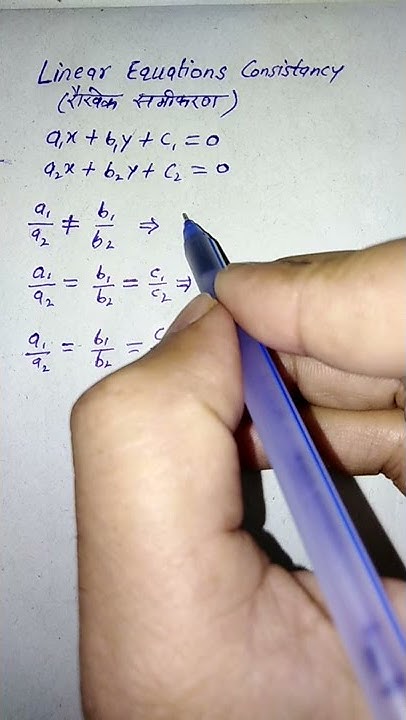 Linear Equations Consistancy
(रैखिक समीकरण)
a₁x + b₁y + c₁ = 0
a₂x + b₂y + c₂ = 0
a₁/a₂ ≠ b₁/b₂ ⇒
a₁/a₂ = b₁/b₂ = c₁/c₂ ⇒
a₁/a₂ = b₁/b₂ =